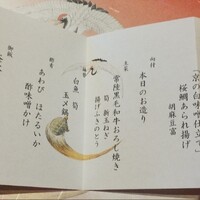 京の白味噌仕立て
桜鯛あられ揚げ
胡麻豆富
向付
本日のお造り
常陸黒毛和牛おろし焼き
筍 新玉ねぎ
揚げふきのとう
白魚 筍
玉〆鍋
酢肴
あわび ほたるいか
酢味噌かけ
御飯